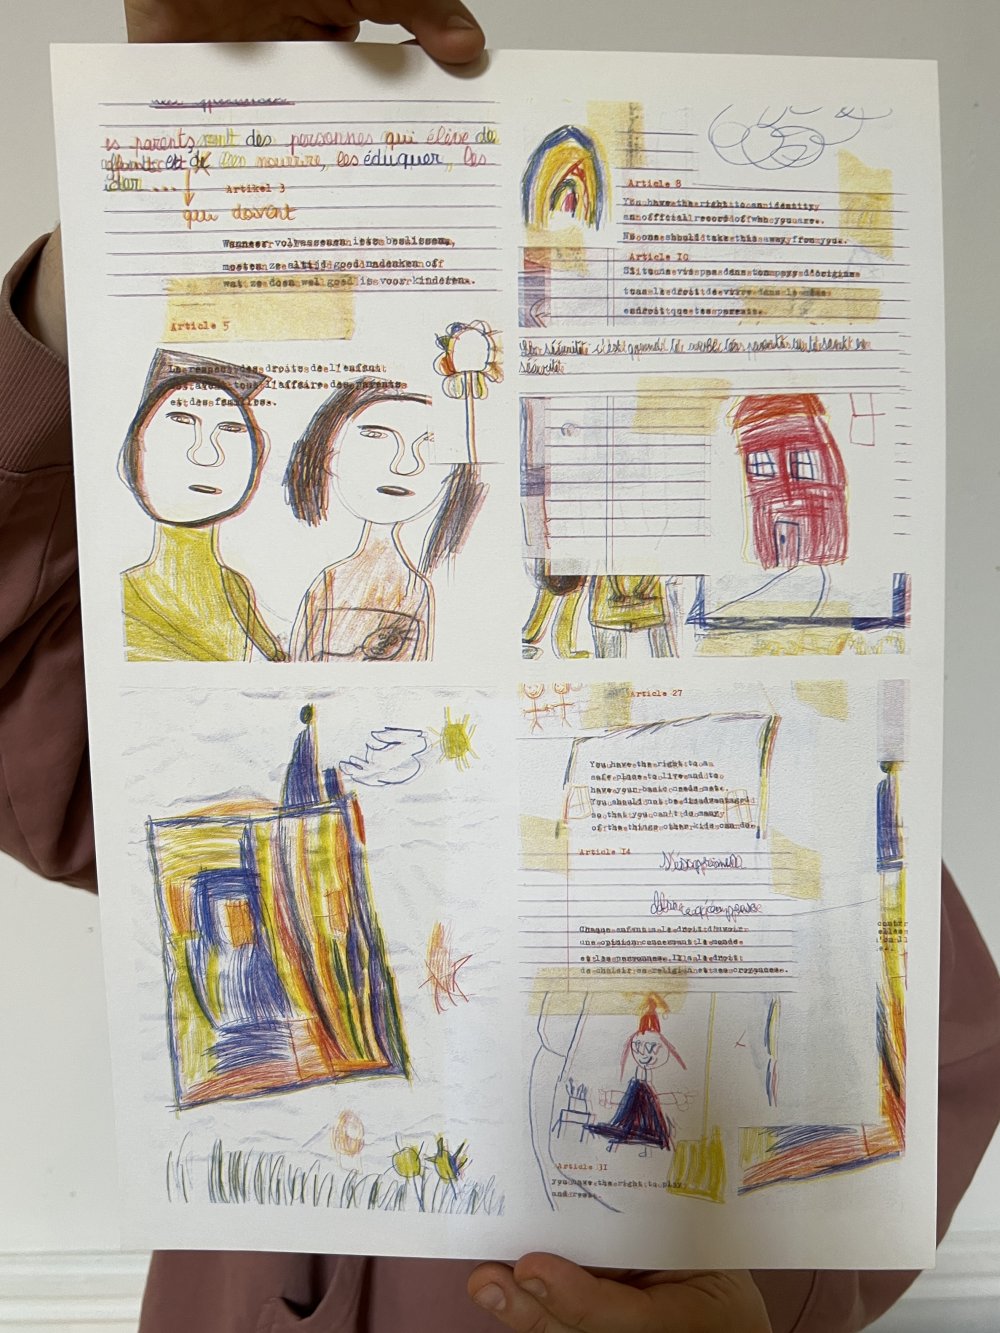 parents sont des personnes qui élève de
nourrire, les éduquer, les
....
Artikel 3
qui doivent
Wanneer volwassenen iets beslissen,
moeten ze altijd goed nadenken of
wat ze doen wel goed is voor kinderen.
Article 5
Le respect des droits de l'enfant
est avant tout l'affaire des parents
et des familles.
Article 8
You have the right to an identity
an official record of who you are.
No one should take this away from you.
Article 10
Si tu ne vis pas dans ton pays d'origine
tu as le droit de vivre dans le même
endroit que tes parents.
sécurité c'est quand le les parents se sent en
sécurité
Article 27
You have the right to a
safe place to live and to
have your basic needs met.
You should not be disadvantaged
so that you can't do many
of the things other kids can do.
Article 14
Chaque enfant a le droit d'avoir
une opinion concernant le monde
et les personnes. Il a le droit
de choisir sa religion et ses croyances.
Article 31
you have the right to play
and rest.